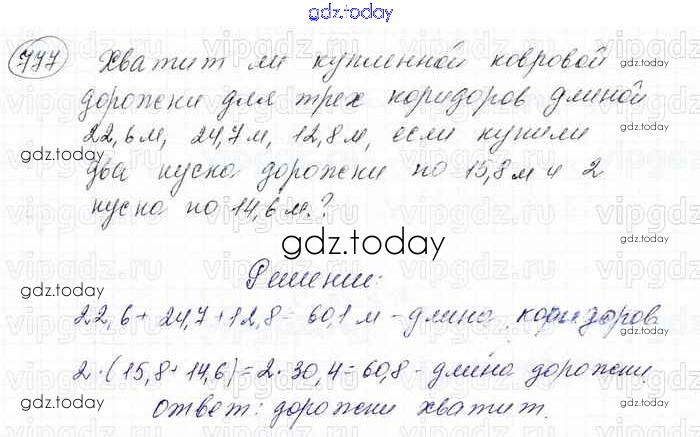 gdz.today
777 Хватит ли купленной ковровой
дорожки для трех коридоров длиной
22,6 м, 24,7 м, 12,8 м, если купили
два куска дорожки по 15,8 м и 2
куска по 14,6 м.?
Решение:
22,6 + 24,7 + 12,8 = 60,1 м - длина коридоров
2 · (15,8 + 14,6) = 2 · 30,4 = 60,8 - длина дорожки
Ответ: дорожки хватит.
gdz.today
gdz.today
gdz.today
gdz.today
gdz.today
gdz.today
gdz.today
gdz.today
gdz.today
gdz.today